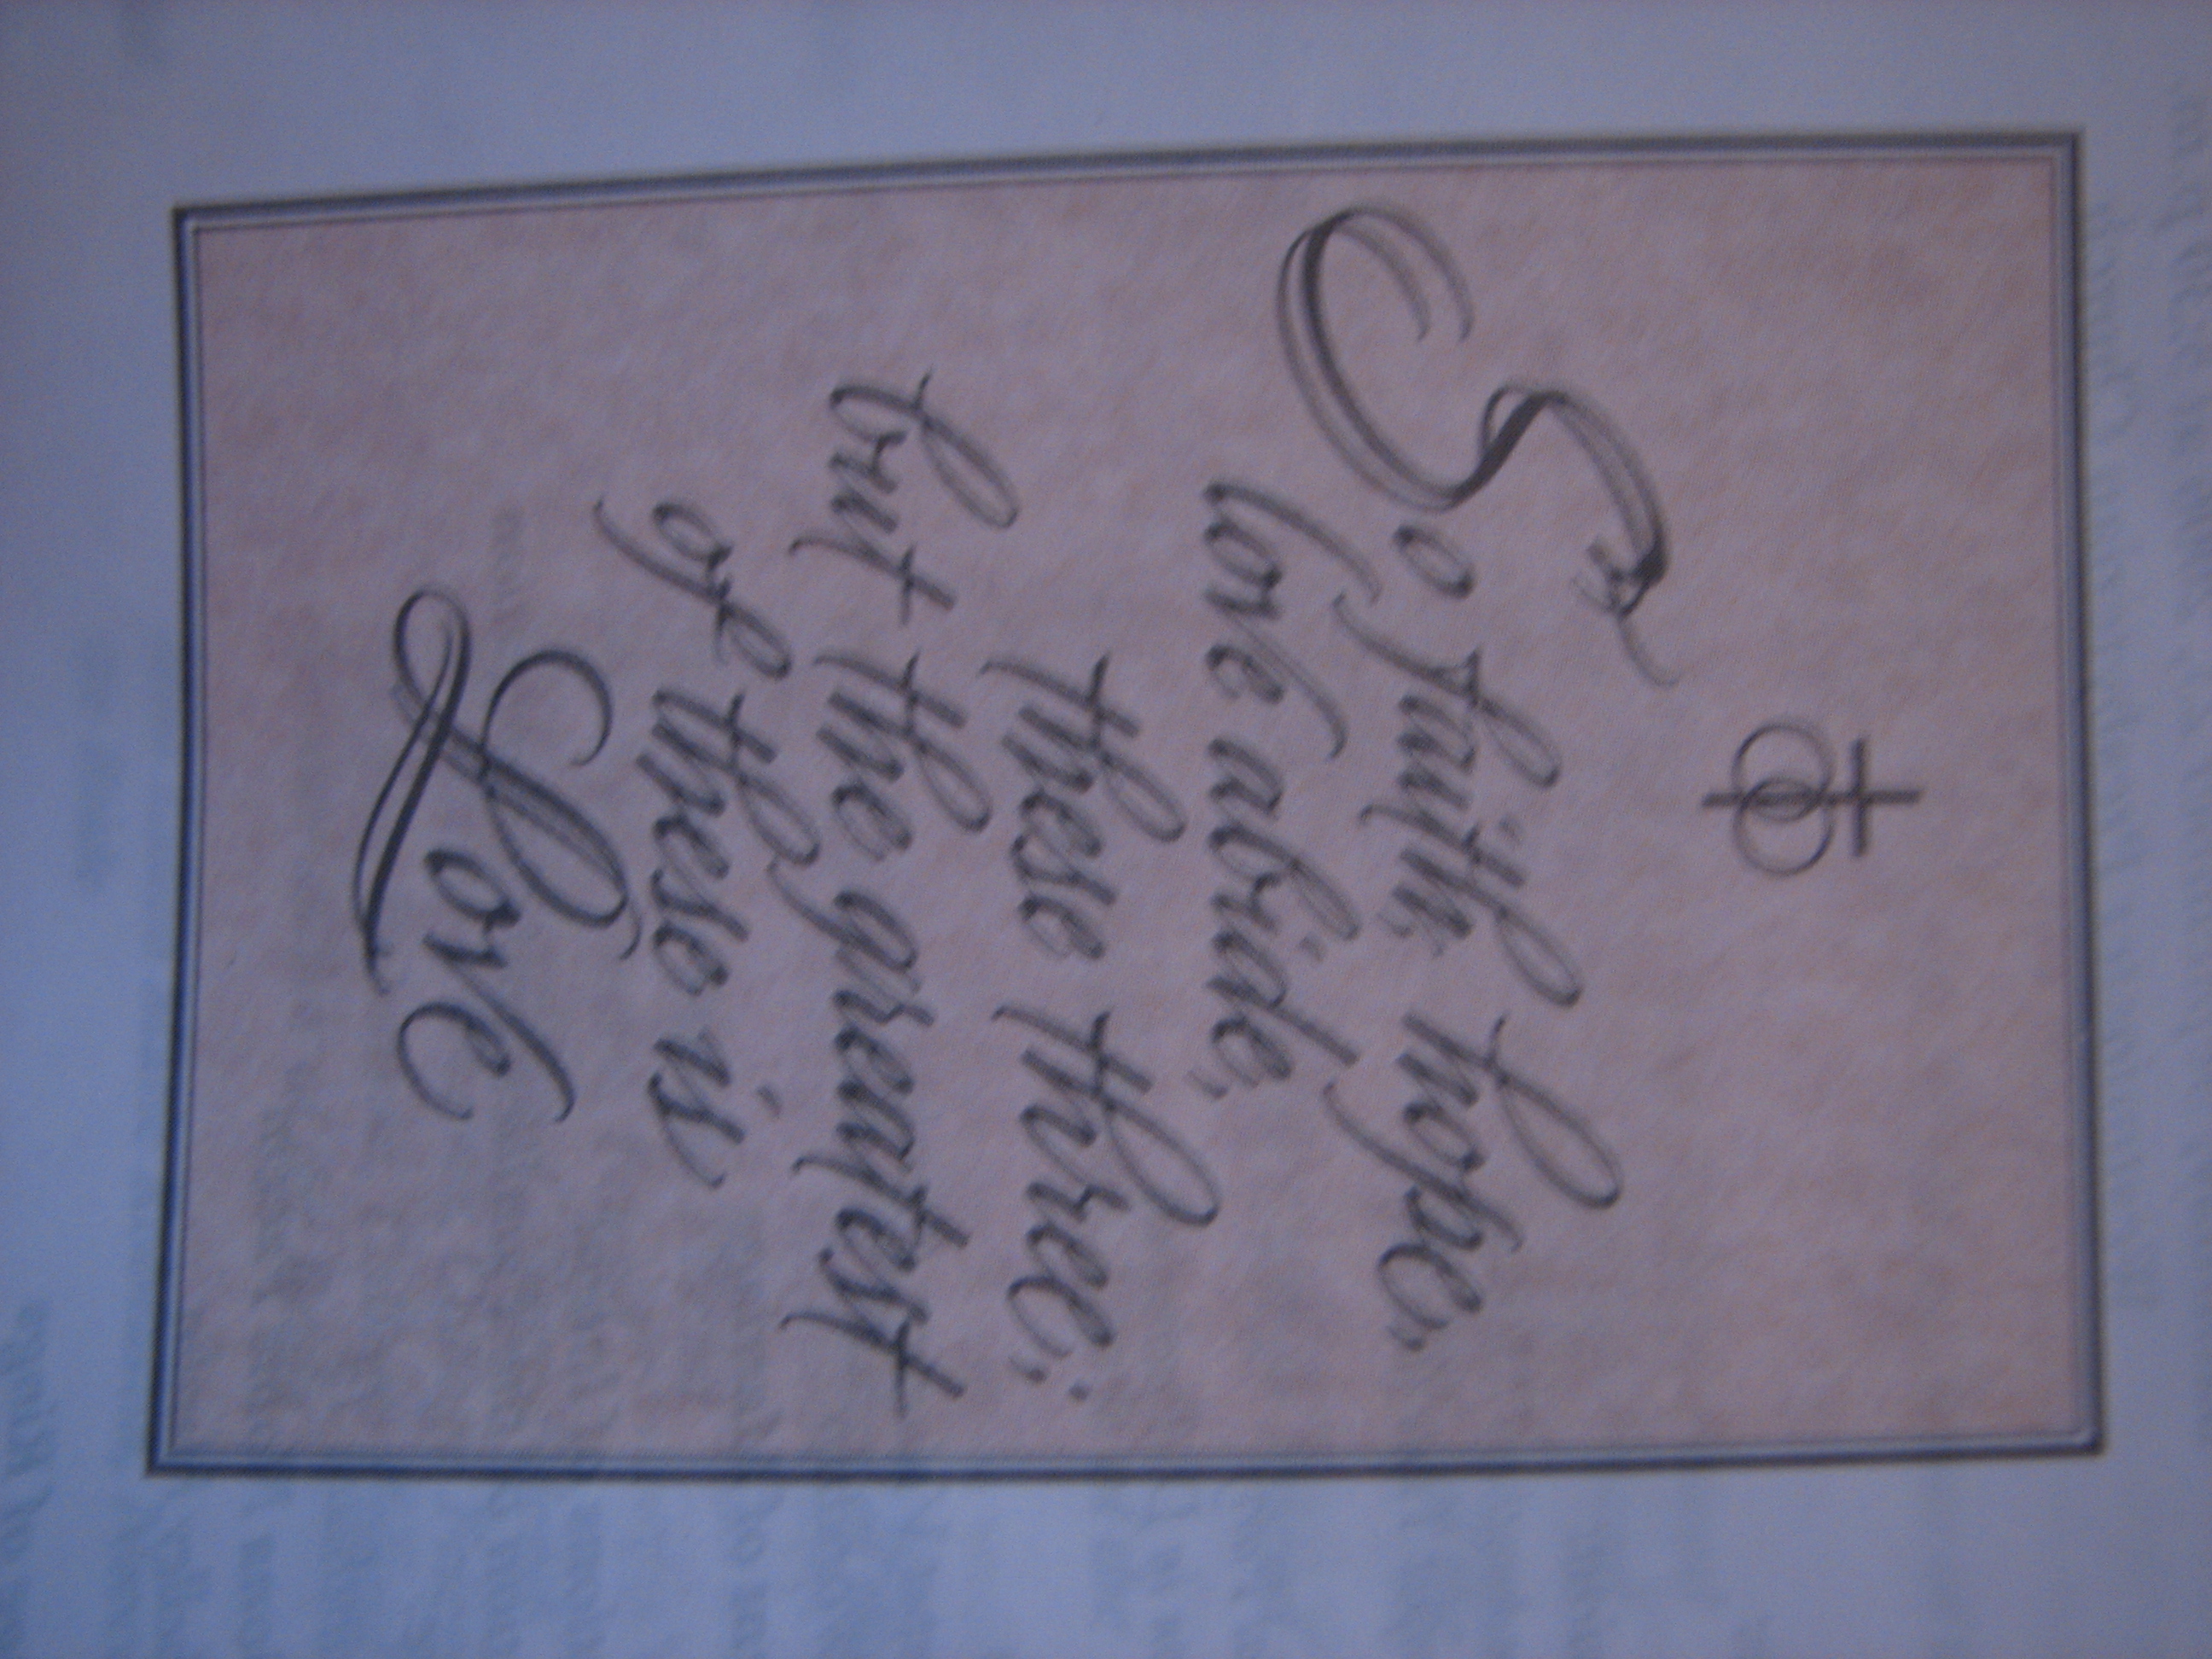 So faith, hope,
love abide,
these three;
but the greatest
of these is
Love